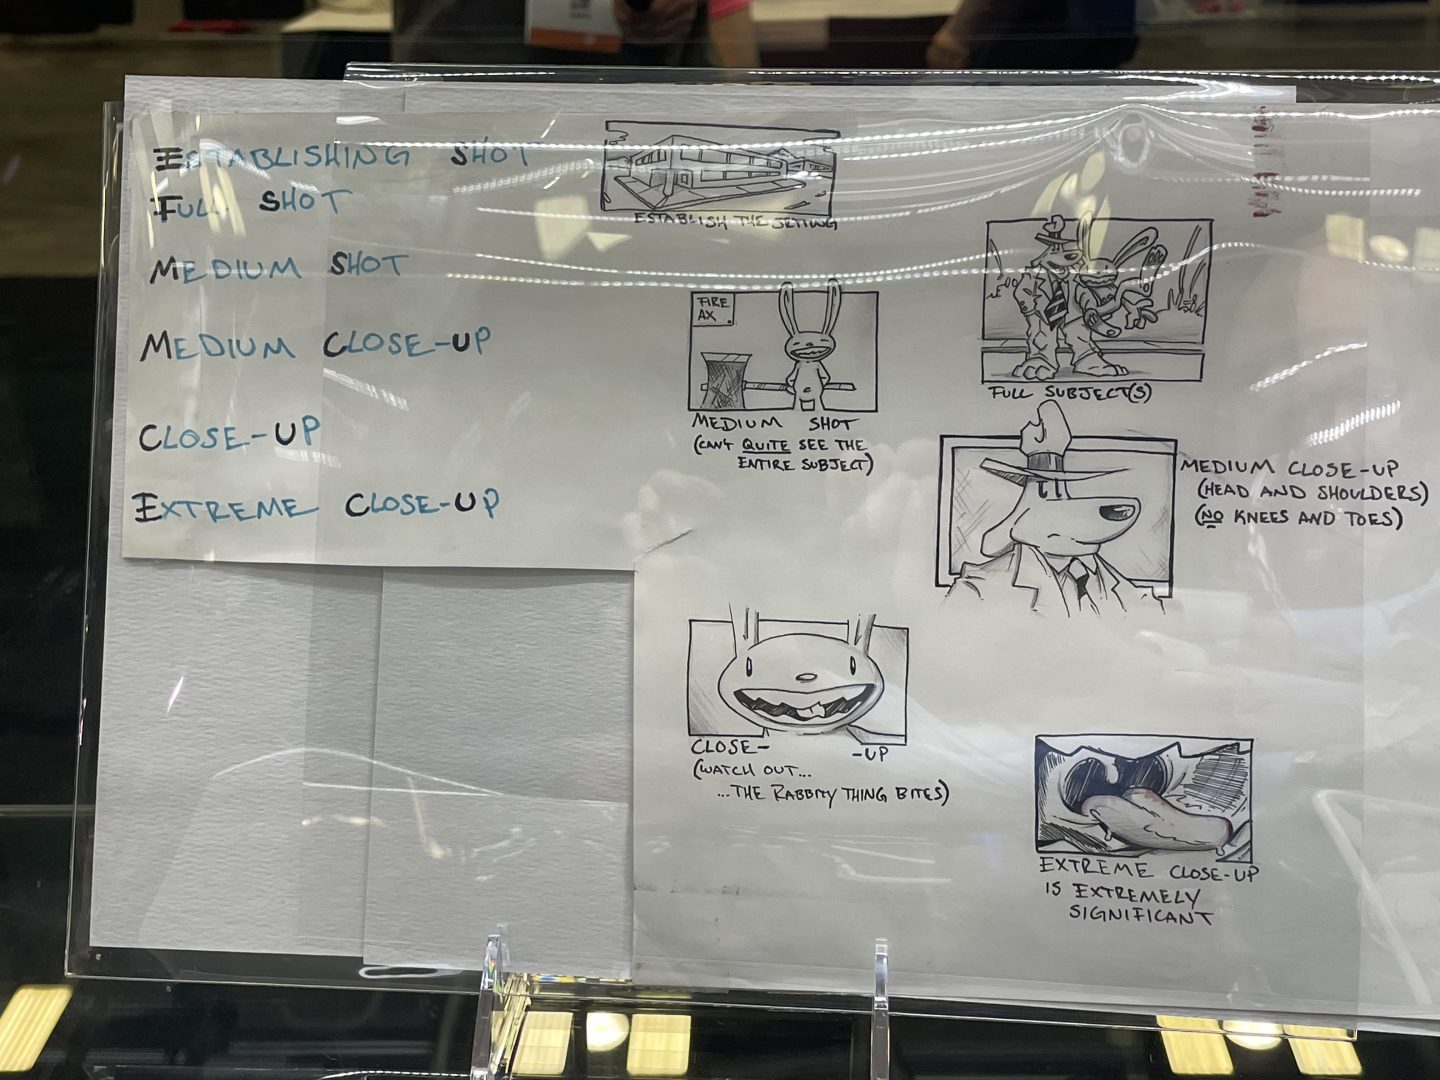 ESTABLISHING SHOT
FULL SHOT
MEDIUM SHOT
MEDIUM CLOSE-UP
CLOSE-UP
EXTREME CLOSE-UP
ESTABLISH THE SETTING
FULL SUBJECT(S)
FIRE
AX
MEDIUM SHOT
(CAN'T QUITE SEE THE
ENTIRE SUBJECT)
MEDIUM CLOSE-UP
(HEAD AND SHOULDERS)
(NO KNEES AND TOES)
CLOSE- -UP
(WATCH OUT...
...THE RABBITY THING BITES)
EXTREME CLOSE-UP
IS EXTREMELY
SIGNIFICANT